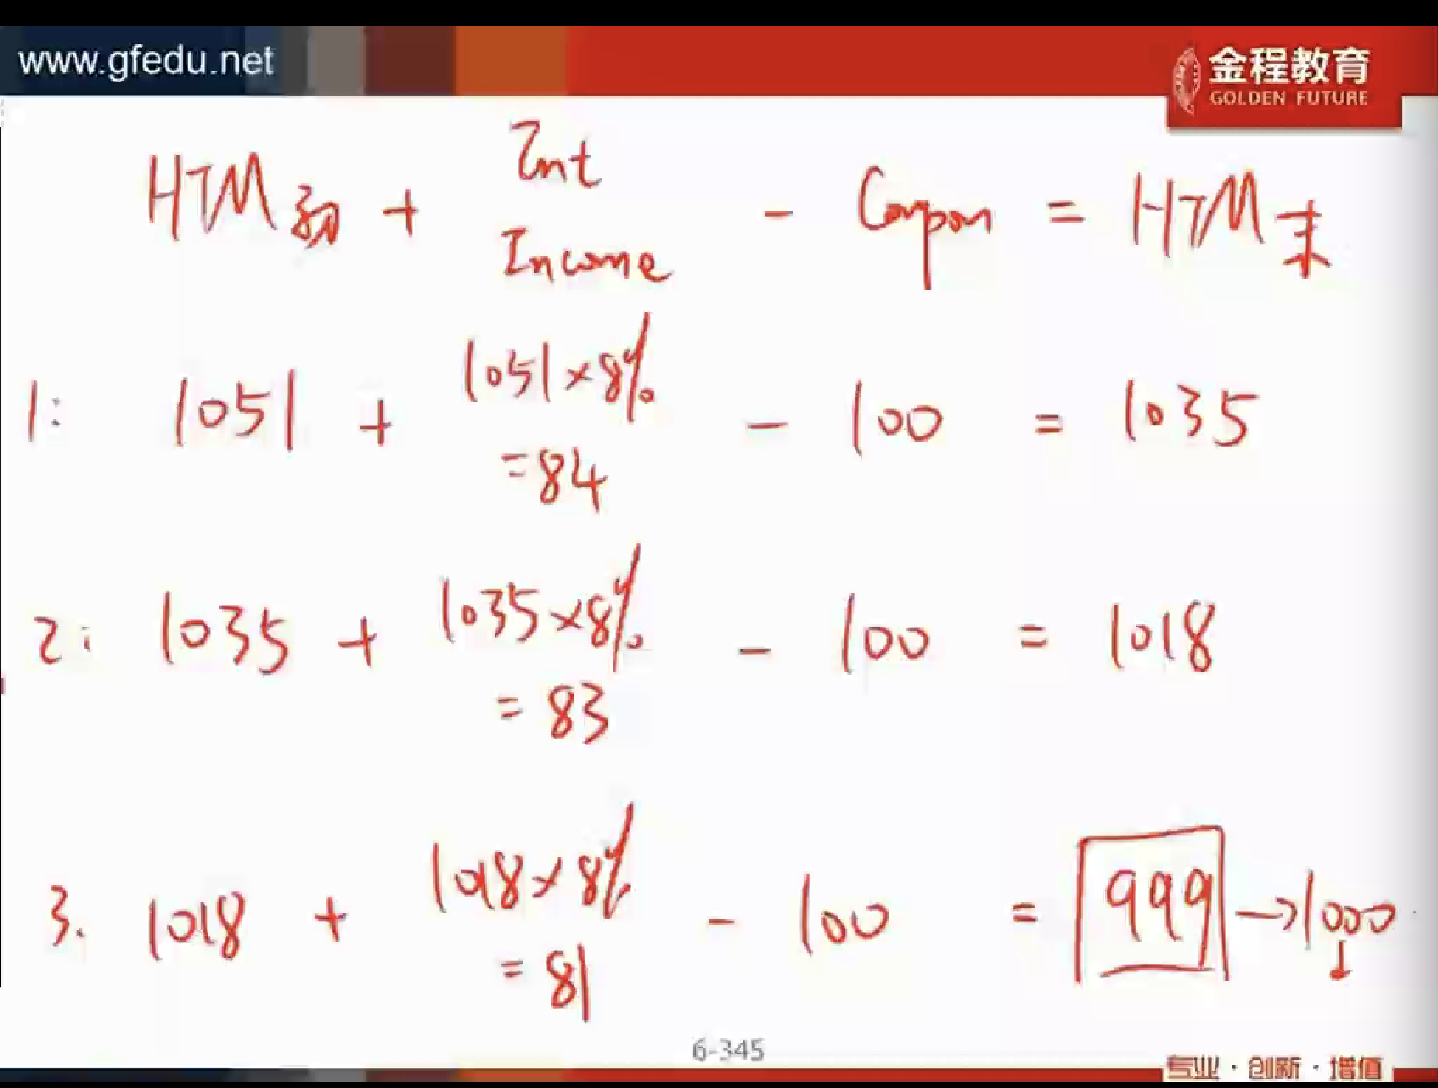 www.gfedu.net
金程教育
GOLDEN FUTURE
HTM初 + Int Income - Coupon = HTM末
1: 1051 + 1051×8% =84 - 100 = 1035
2: 1035 + 1035×8% = 83 - 100 = 1018
3. 1018 + 1018×8% = 81 - 100 = 999 → 1000
6-345
专业·创新·增值